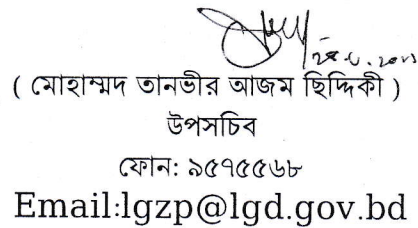 ( মোহাম্মদ তানভীর আজম ছিদ্দিকী )
উপসচিব
ফোন: ৯৫৭৫৫৬৮
Email:lgzp@lgd.gov.bd